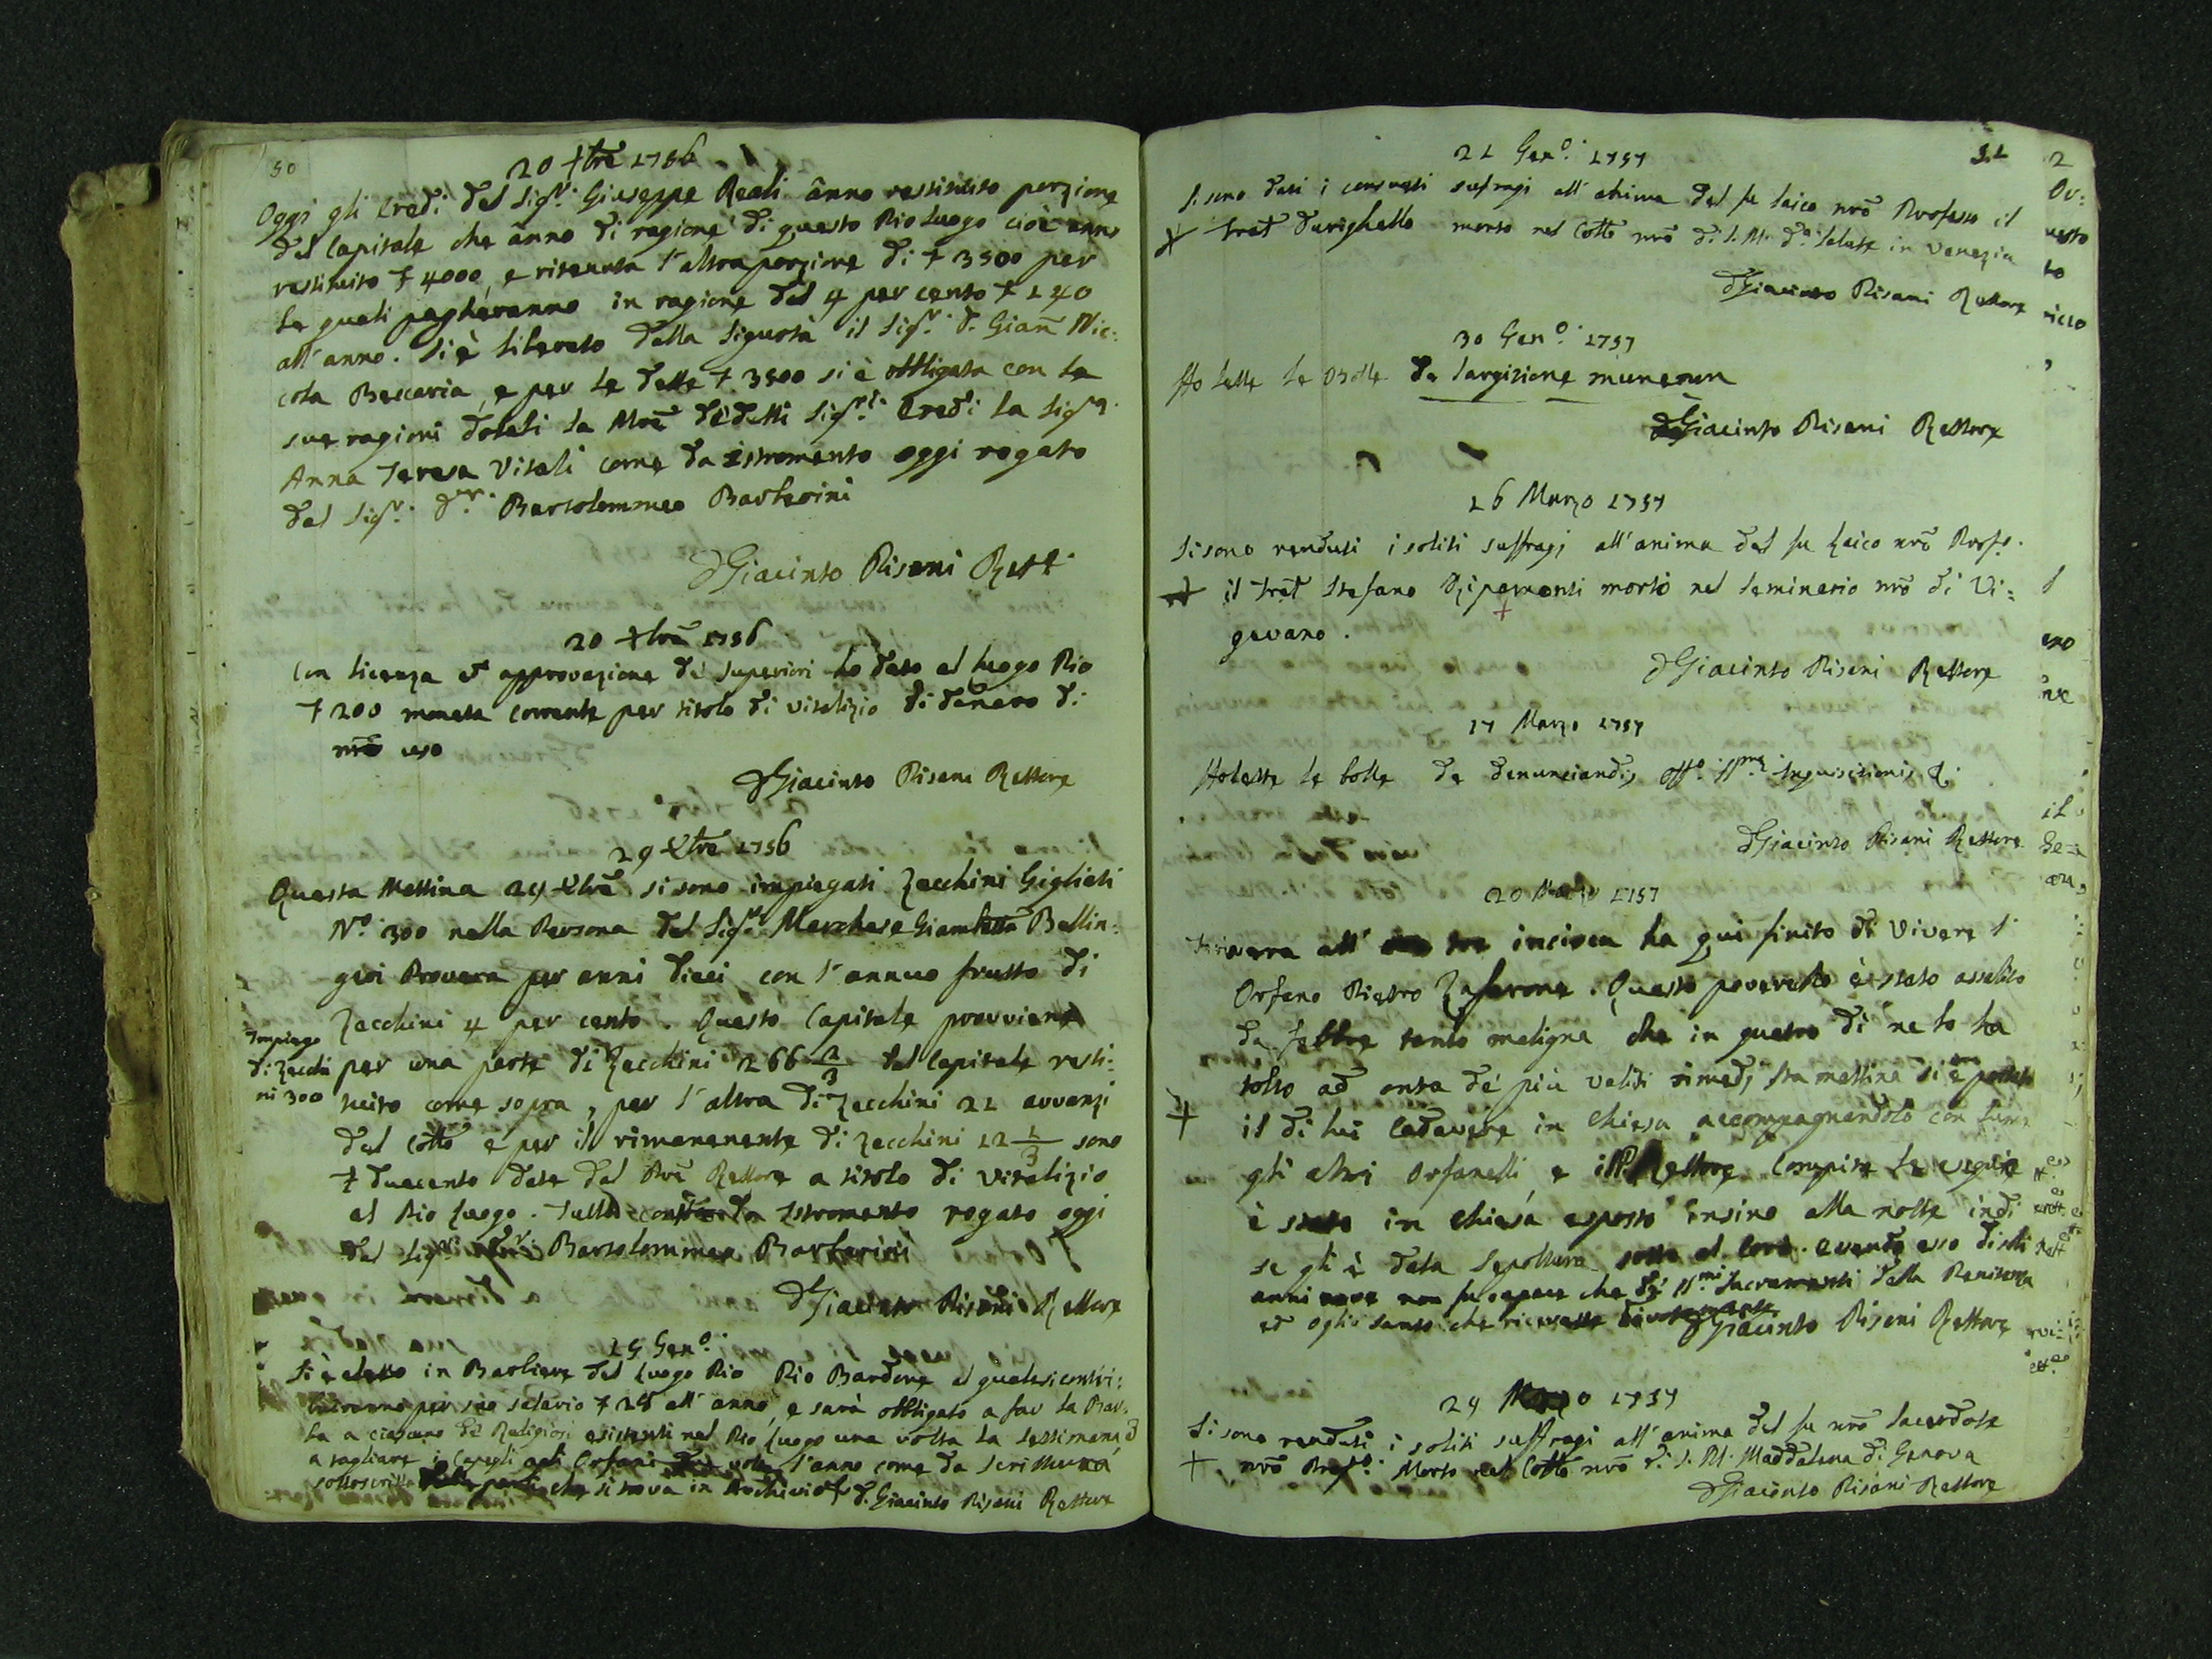 50
20 Xbrē 1756
Oggi gli Eredi del Sigr. Giuseppe Reali ânno restituito porzione
del Capitale che ânno di ragione di questo Pio Luogo cioè anno
restituito ₤ 4000, e ritenuta l'altra porzione di ₤ 3500 per
le quali pagheranno in ragione del 4 per cento ₤ 140
all'anno. Si è liberato dalla sigurtà il Sigr. D. Gian Nic:
cola Beccaria, e per le dette ₤ 3500 si è obbligata con le
sue ragioni dotali la Mrē de detti Sigri. Eredi la Sigra.
Anna Teresa Vitali come da istromento oggi rogato
dal Sigr. Dr. Bartolommeo Barberini
D Giacinto Pisani Rett
20 Xbrē 1756
Con licenza et approvazione de' Superiori ho dato al luogo Pio
₤ 200 moneta corrente per titolo di vitalizio di denaro di
mio uso
D Giacinto Pisani Rettore
29 Xbrē 1756
Questa Mattina 29 Xbrē si sono impiegati Zecchini Gigliati
No. 300 nella Persona del Sigr. Marchese Giambatta Bellin:
gieri Provera per anni dieci con l'annuo frutto di
Zecchini 4 per cento. Questo Capitale provviene
Impiego
di Zecchi
ni 300
per una parte di Zecchini 266 2/3 del capitale resti:
tuito come sopra, per l'altra di Zecchini 21 avvanzi
del Cottō e per il rimanenente di Zecchini 12 1/3 sono
₤ duecento date dal Prē Rettore a titolo di vitalizio
al Pio Luogo. Tutto da Istromento rogato oggi
dal Sigr. Dr. Bartolommeo Barberini
D Giacinto Pisani Rettore
15 Geno.
Si è eletto in Barbiere del Luogo Pio Pio Bardone al quale si contri:
per suo salario ₤ 28 all'anno, e sarà obbligato a far la Bar:
ba a ciascuno de' Religiosi esistenti nel Pio Luogo una volta la settimana e
a tagliare i Capegli agli Orfani volte l'anno come da scrittura
sottoscritta che si trova in Archivio D. Giacinto Pisani Rettore
51
21 Geno. 1757
Si sono dati i consueti sufragi all'anima del fu laico nrō Professo il
+ frat Darighello morto nel Cottō nrō di S. M. da. Salute in Venezia
D Giacinto Pisani Rettore
30 Geno. 1757
Ho lette le Bolle de largitione munerum
D Giacinto Pisani Rettore
16 Marzo 1757
Si sono renduti i soliti suffragj all'anima del fu Laico nrō Profo.
+ il frat Stefano Ripamonti morto nel Seminario nrō di Vi:
gevano.
D Giacinto Pisani Rettore
17 Marzo 1757
Ho lette le bolle de denunciandis offo. SSmæ Inquisitionis &.
D Giacinto Pisani Rettore
20 Marzo 1757
all' tre incirca ha qui finito di vivere l'
Orfano Pietro Zaferone. Questo poveretto è stato assalito
da febbre tanto maligna che in quatro di ne lo ha
tolto ad onta de' più validi rimedj, sta mattina si è portato
+ il di lui Cadavere in Chiesa accompagnandolo con lume
gli altri Orfanelli e il P. Rettore. Compite le esequie
è stato in chiesa esposto insino alla notte indi
se gli è data Sepoltura sotto al Coro. avendo esso dieci
anni non fu capace che de' SSmi Sacramenti della Penitenza
ed oglio santo che ricevette divotamente
D Giacinto Pisani Rettore
24 Marzo 1757
Si sono renduti i soliti suffragi all'anima del fu nrō Sacerdote
+ nrō Profo. Morto nel Cottō nrō di S. M. Maddalena di Genova
D Giacinto Pisani Rettore